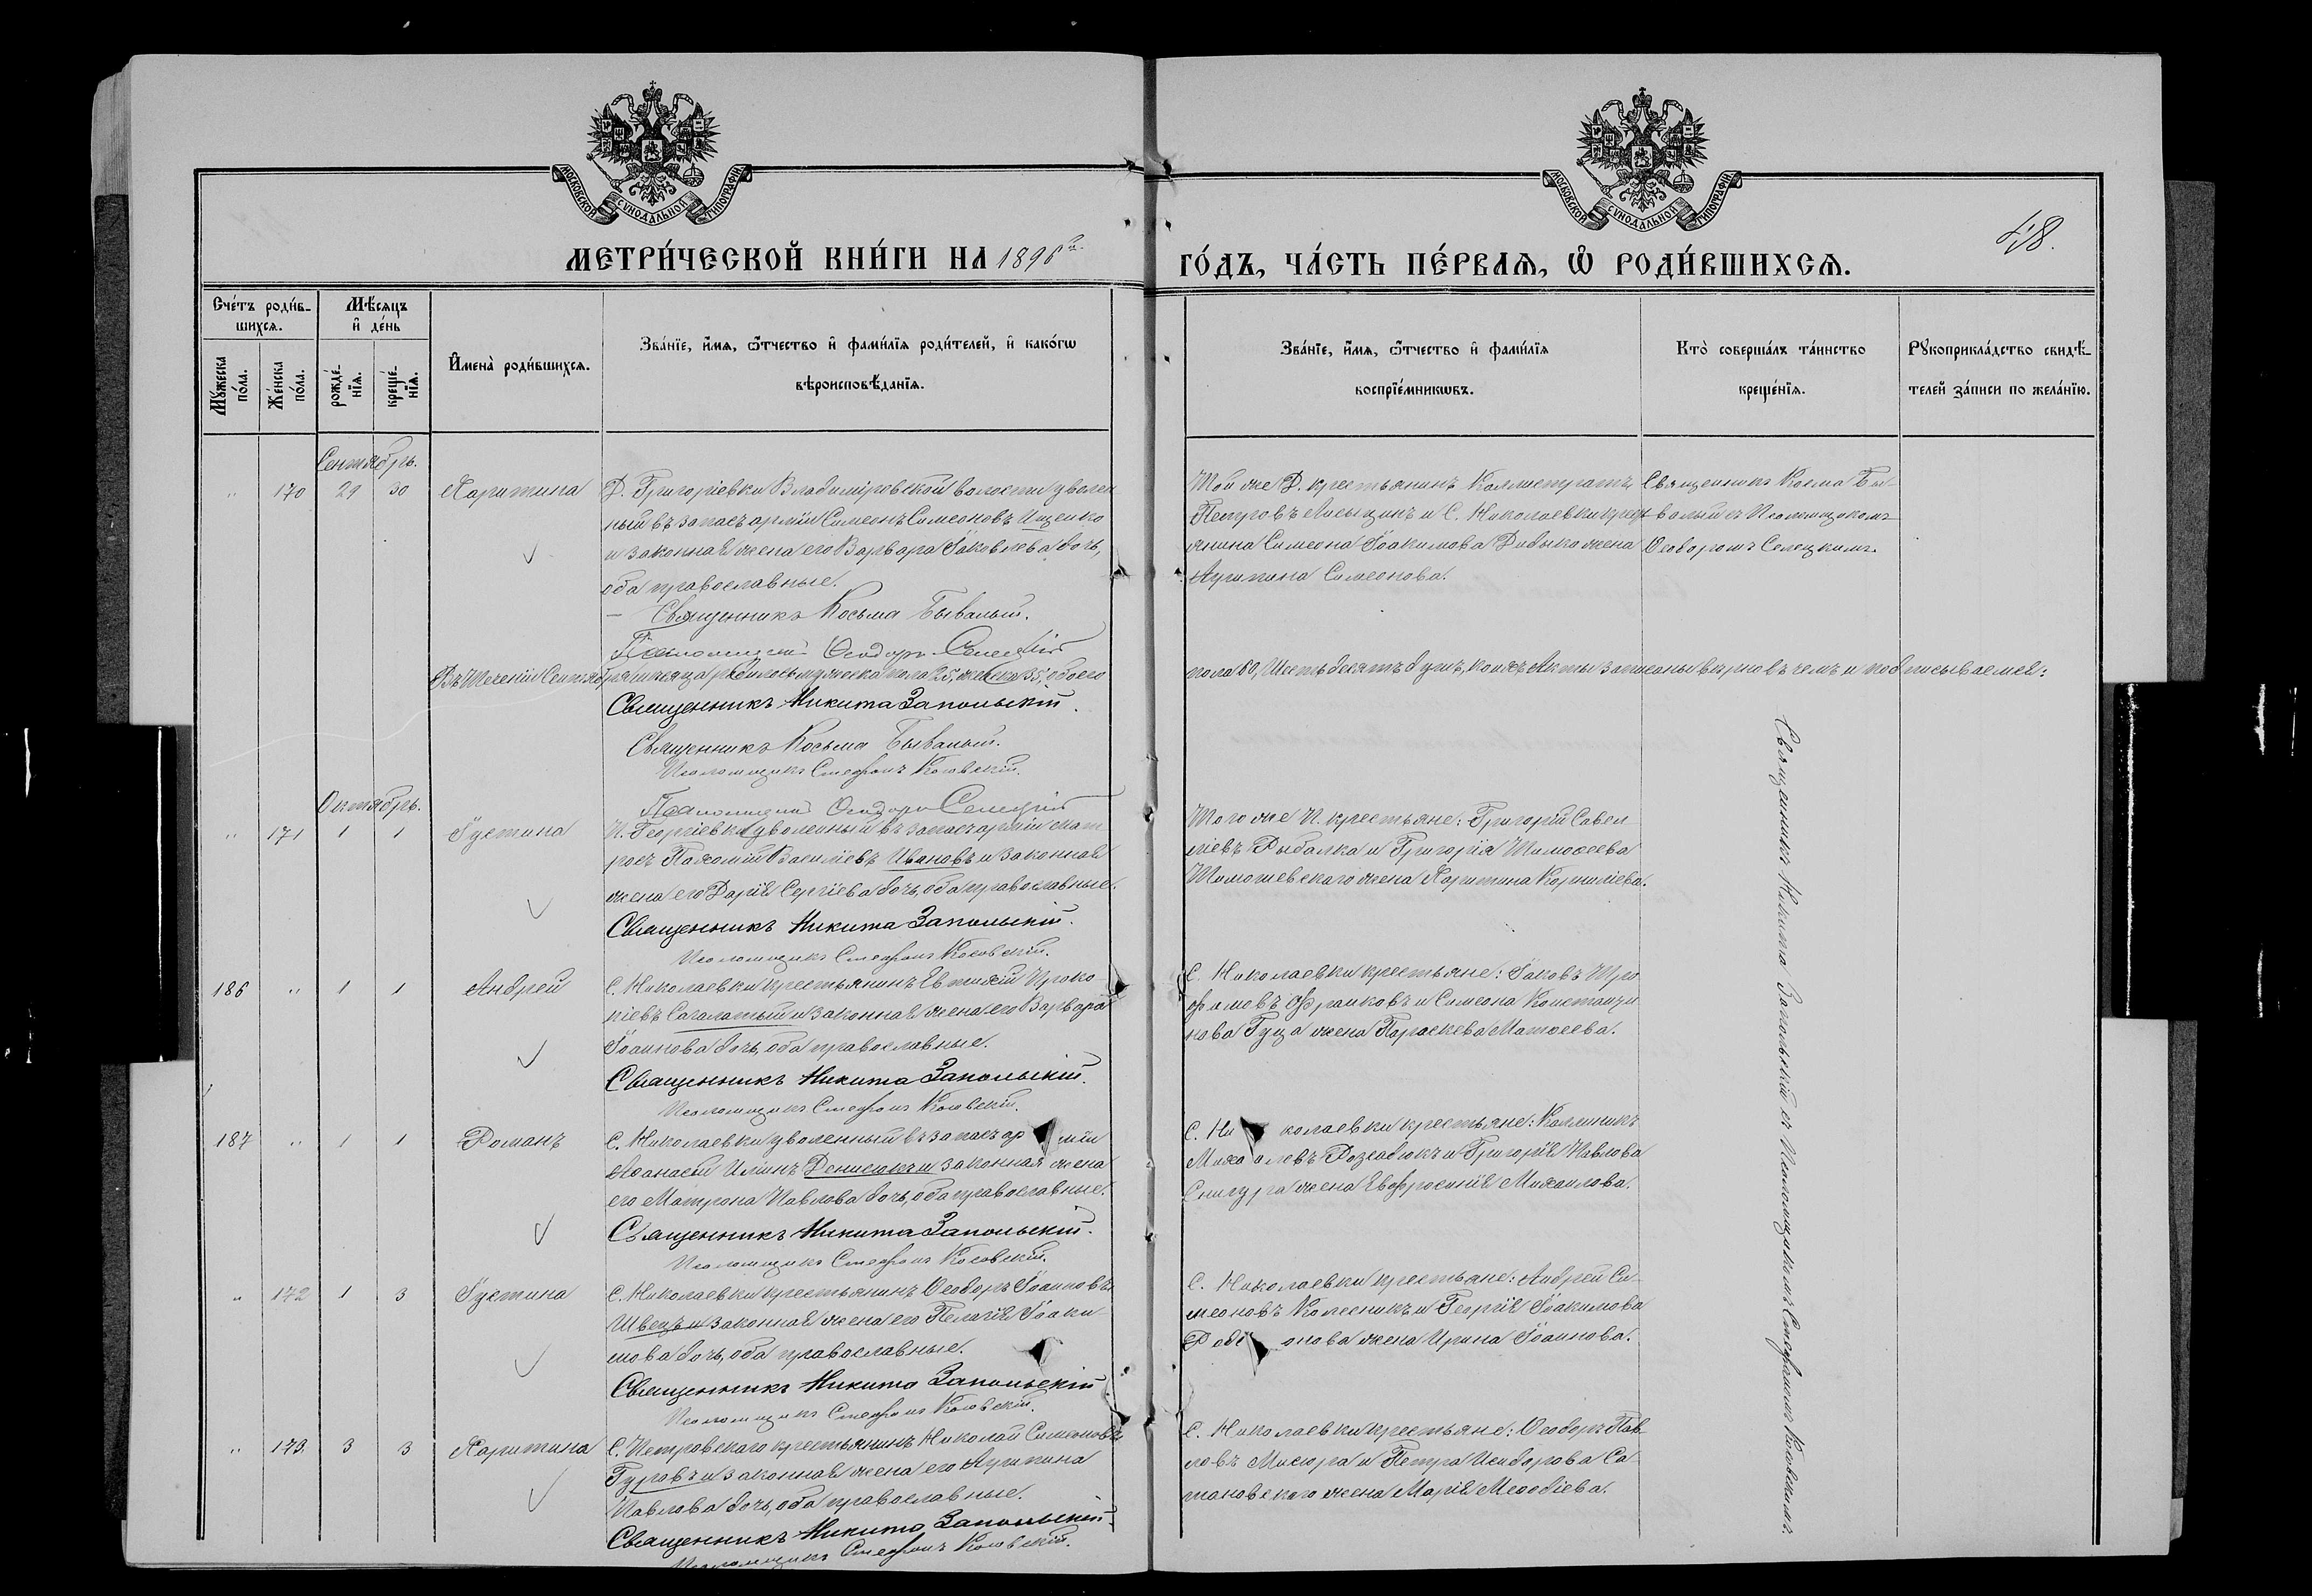 МОСКОВСКОЙ СѴНОДАЛЬНОЙ ТИПОГРАФІИ
МОСКОВСКОЙ СѴНОДАЛЬНОЙ ТИПОГРАФІИ
МЕТРИ́ЧЕСКОЙ КНИ́ГИ НА 1896 й.
ГО́ДЪ, ЧА́СТЬ ПЕ́РВАѦ, Ѡ҆ РОДИ́ВШИХСѦ.
Сче́тъ роди́в-
шихсѧ.
Мѣ́сѧцъ
и҆ де́нь
Мꙋ́жеска
по́ла.
Же́нска
по́ла.
рожде́-
нїѧ.
креще́-
нїѧ.
И҆мена̀ роди́вшихсѧ.
Зва́нїе, и҆́мѧ, ѻ҆́тчество и҆ фами́лїѧ роди́телей, и҆ како́гѡ
вѣроисповѣ́данїѧ.
Зва́нїе, и҆́мѧ, ѻ҆́тчество и҆ фами́лїѧ
воспрїе́мникѡвъ.
Кто̀ соверша́лъ та́инство
креще́нїѧ.
Рꙋкоприкла́дство свидѣ́-
телей за́писи по жела́нїю.
Сентябрь.
" 170 29 30 Харитина
Д. Григоріевки Владиміровской волости уволен
ный въ запасъ арміи Симеонъ Симеоновъ Ищенко
и законная жена его Варвара Іаковлева дочь,
оба православные.
Священникъ Косьма Бывалый.
Псаломщикъ Ѳеодоръ Селецкій
Той же Д. крестьянинъ Каллистратъ
Петровъ Лисицинъ и С. Николаевки крест
янина Симеона Іоакимова Дидыко жена
Агрипина Симеонова.
Священникъ Косма Бы-
валый съ Псаломщикомъ
Ѳеодоромъ Селецкимъ.
Въ теченіи Сентября мѣсяца родилось мужеска пола 25, женска 35, обоего
пола 60, Шестьдесятъ душъ, коихъ Акты записаны вѣрно въ чемъ и подписываемся:
Священникъ Никита Запольскій.
Священникъ Косьма Бывалый.
Псаломщикъ Стефанъ Косовскій.
Псаломщикъ Ѳеодоръ Селецкій
Октябрь.
" 171 1 1 Іустина
П. Георгіевки уволенный въ запасъ арміи мат
росъ Пахомій Василіевъ Ивановъ и законная
жена его Дарія Сергіева дочь, оба православные.
Священникъ Никита Запольскій.
Псаломщикъ Стефанъ Косовскій.
Того же П. крестьяне: Григорій Савел
ліевъ Рыбалка и Григорія Тимоѳеева
Томошевскаго жена Харитина Корниліева.
186 " 1 1 Андрей
С. Николаевки крестьянинъ Евтихій Проко
піевъ Сагалатый и законная жена его Варвара
Іоаннова дочь, оба православные.
Священникъ Никита Запольскій.
Псаломщикъ Стефанъ Косовскій.
С. Николаевки крестьяне: Іаковъ Тро
фимовъ Франковъ и Симеона Констанди
нова Гуща жена Параскева Матѳеева.
187 " 1 1 Романъ
С. Николаевки уволенный въ запасъ арміи
Аѳанасій Иліинъ Денисюкъ и законная жена
его Матрона Павлова дочь, оба православные.
Священникъ Никита Запольскій.
Псаломщикъ Стефанъ Косовскій.
С. Николаевки крестьяне: Каллиникъ
Михаилевъ Розсадюкъ и Григорія Павлова
Снигура жена Евфросинія Михаилова.
" 172 1 3 Іустина
С. Николаевки крестьянинъ Ѳеодоръ Іоанновъ
Швецъ и законная жена его Пелагія Іоаки
мова дочь, оба православные.
Священникъ Никита Запольскій
Псаломщикъ Стефанъ Косовскій.
С. Николаевки крестьяне: Андрей Си-
меоновъ Колесникъ и Георгія Іоакимова
жена Ирина Іоаннова.
" 173. 3 3 Харитина
С. Петровскаго крестьянинъ Николай Симеоновъ
Гуровъ и законная жена его Агрипина
Павлова дочь, оба православные.
Священникъ Никита Запольскій.
Псаломщикъ Стефанъ Косовскій.
С. Николаевки крестьяне: Ѳеодоръ Пав-
ловъ Мисюра и Петра Исидорова Са
мановскаго жена Марія Меѳодіева.
Священникъ Никита Запольскій съ Псаломщикомъ Стефаномъ Косовскимъ.